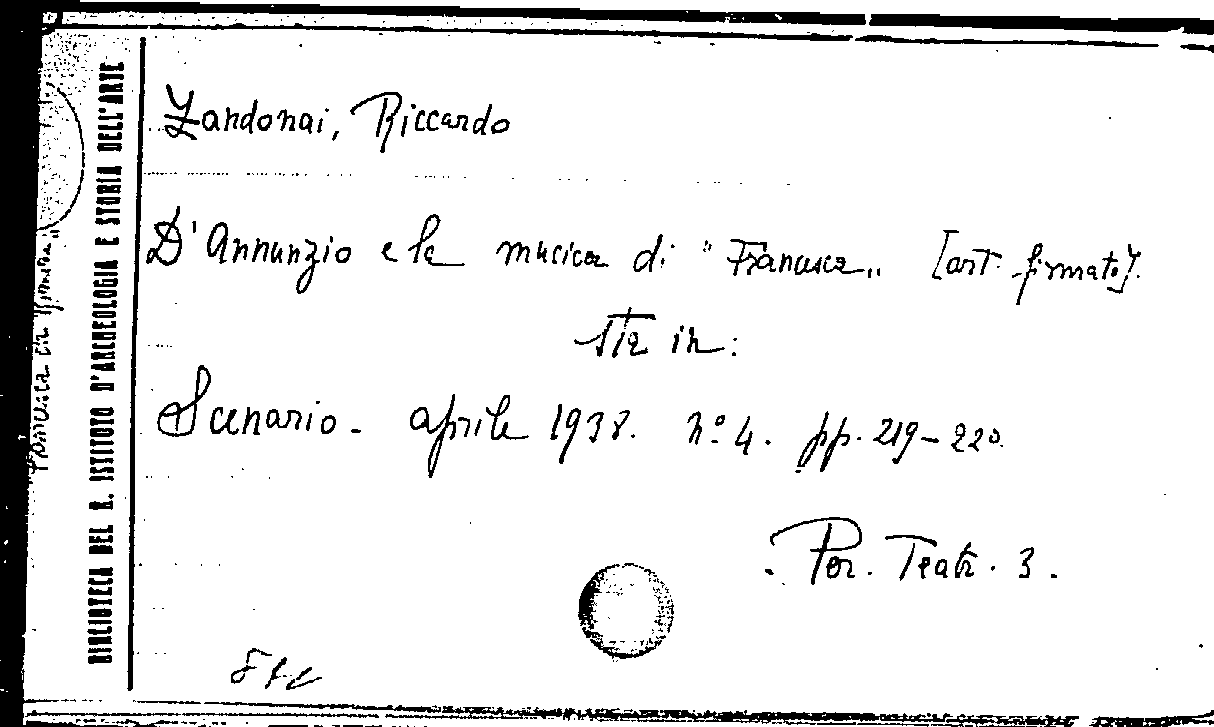 Zandonai, Riccardo
D'Annunzio e la musica di "Francesca„ [art. firmato].
sta in:
Scenario - aprile 1938. nº 4. pp. 219-220.
Per. Teatr. 3.
BIBLIOTECA DEL R. ISTITUTO D'ARCHEOLOGIA E STORIA DELL'ARTE
Francesca da Rimini„